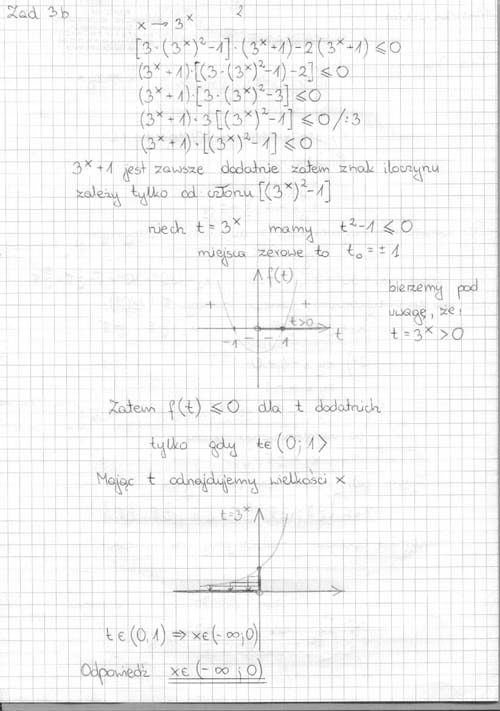 Zad 3b
2
x → 3^x
[3·(3^x)²-1]·(3^x+1)-2(3^x+1)⩽0
(3^x+1)·[(3·(3^x)²-1)-2]⩽0
(3^x+1)·[3·(3^x)²-3]⩽0
(3^x+1)·3[(3^x)²-1]⩽0/:3
(3^x+1)·[(3^x)²-1]⩽0
3^x+1 jest zawsze dodatnie zatem znak iloczynu
zależy tylko od członu [(3^x)²-1]
niech t=3^x mamy t²-1⩽0
miejsca zerowe to t₀=±1
f(t)
+ +
t>0
-1 - - 1 t
bierzemy pod
uwagę, że:
t=3^x>0
Zatem f(t)⩽0 dla t dodatnich
tylko gdy t∈(0;1⟩
Mając t odnajdujemy wielkości x
t=3^x
t∈(0,1)⇒x∈(-∞;0)
Odpowiedź x∈(-∞;0)